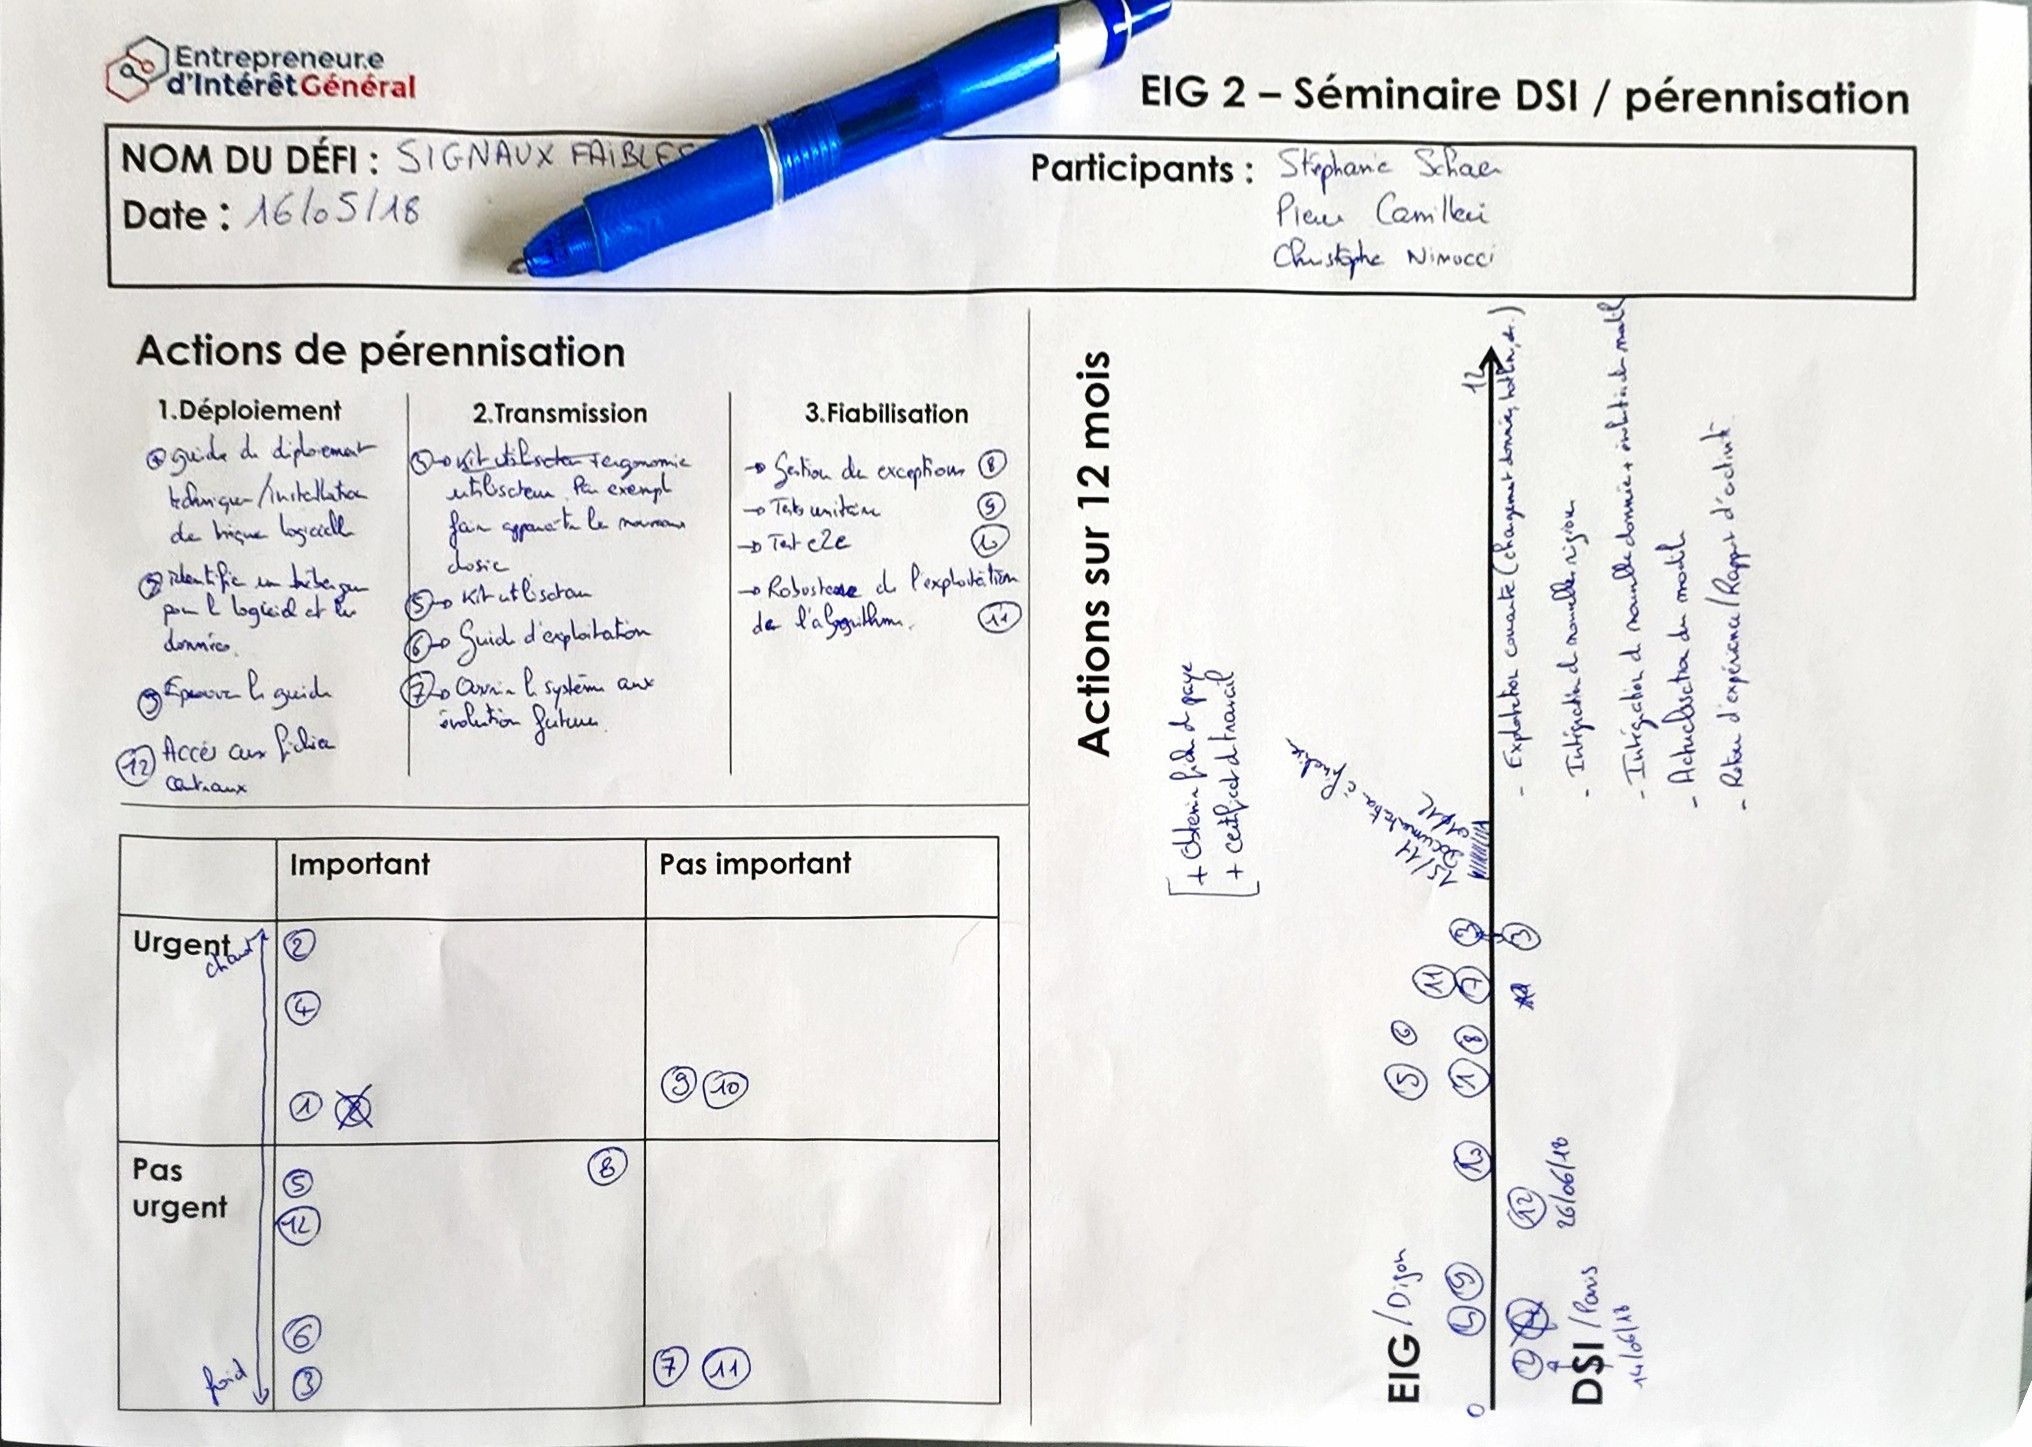 Entrepreneur.e
d'Intérêt Général
EIG 2 – Séminaire DSI / pérennisation
NOM DU DÉFI : SIGNAUX FAIBLES
Date : 16/05/18
Participants : Stéphanie Schaer
Pierre Camilleri
Christophe Ninucci
Actions de pérennisation
1.Déploiement
guide de déploiement
technique/installation
de brique logicielle
② identifier un hébergeur
pour le logiciel et les
données.
③ Eprouver le guide
⑫ Accès aux fichiers
centraux
2.Transmission
Kit utilisateur ergonomie
utilisateur. Par exemple
faire apparaître les nouveaux
⑤→ Kit utilisateur
⑥→ Guide d'exploitation
⑦→ Ouvrir le système aux
évolutions futures.
3.Fiabilisation
→ Gestion des exceptions ⑧
→ Tests unitaires ⑨
→ Test e2e ⑩
→ Robustesse de l'exploitation
de l'algorithme. ⑪
Important
Pas important
Urgent
chaud
②
④
①
⑨ ⑩
Pas
urgent
froid
⑤
⑧
⑫
⑥
③
⑦ ⑪
Actions sur 12 mois
[ + Obtenir fiche de paye
+ certificat de travail ]
EIG / Dijon
④ ⑨
⑩
⑤ ⑥
① ⑧
⑪ ⑦
③
15/11
Documentation
0
12
DSI / Paris
14/06/18
②
⑫
26/06/18
③
- Exploitation courante (chargement données, hotline, etc.)
- Intégration de nouvelles régions
- Intégration de nouvelles données + évolution du modèle
- Actualisation du modèle
- Retour d'expérience/Rapport d'activité